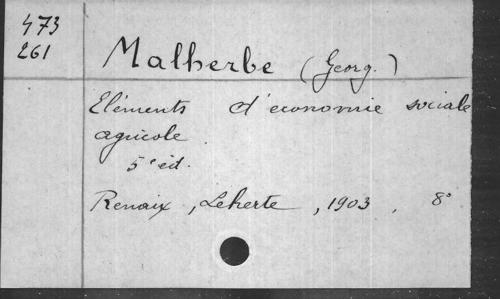 473
261
Malherbe (Georg.)
Eléments d'économie sociale
agricole.
5e éd.
Renaix, Leherte, 1903. 8°